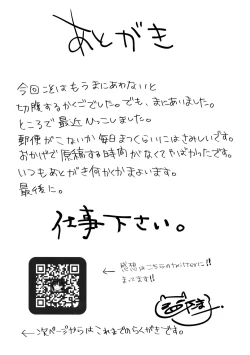 あとがき
今回ことはもうまにあわないと
切腹するかくごでした。でも、まにあいました。
ところで最近ひっこしました。
郵便がこないか毎日まっくらいにはさみしいです。
おかげで原稿する時間がなくてやばかったです。
いつもあとがき何かくかまよいます。
最後に。
仕事下さい。
← 感想はこちらのtwitterに!!
まってます!!
←次ページからはこれまでのらくがきです。